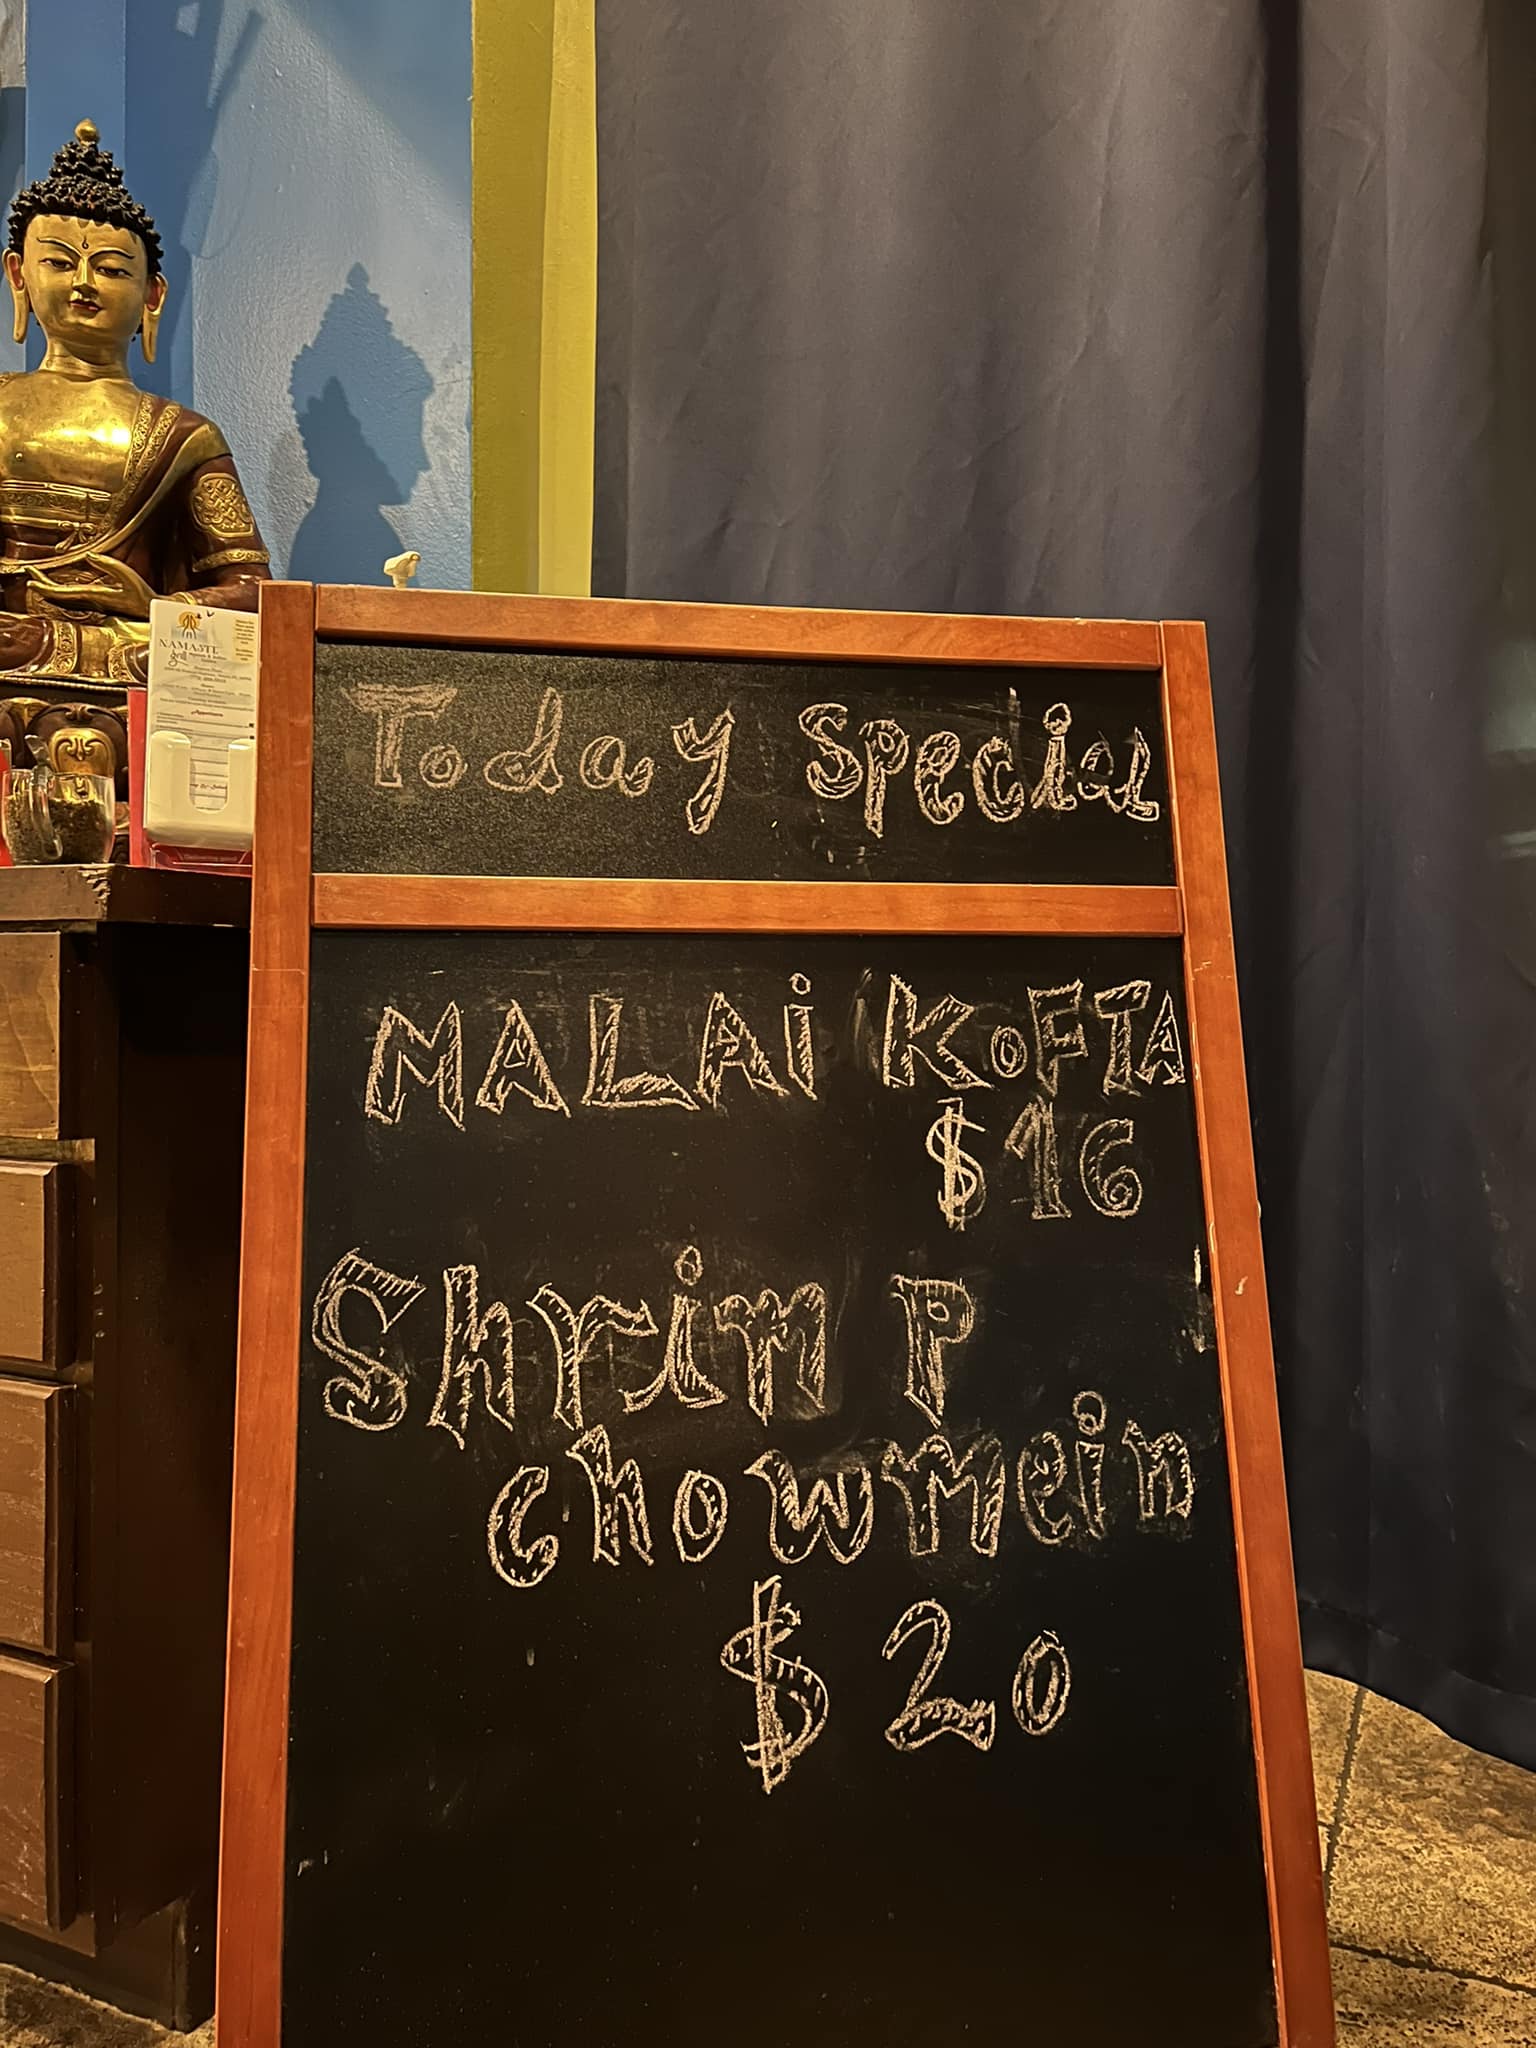 NAMASTE
grill
Today Special
MALAi KoFTA
$16
Shrim P
chowmein
$20